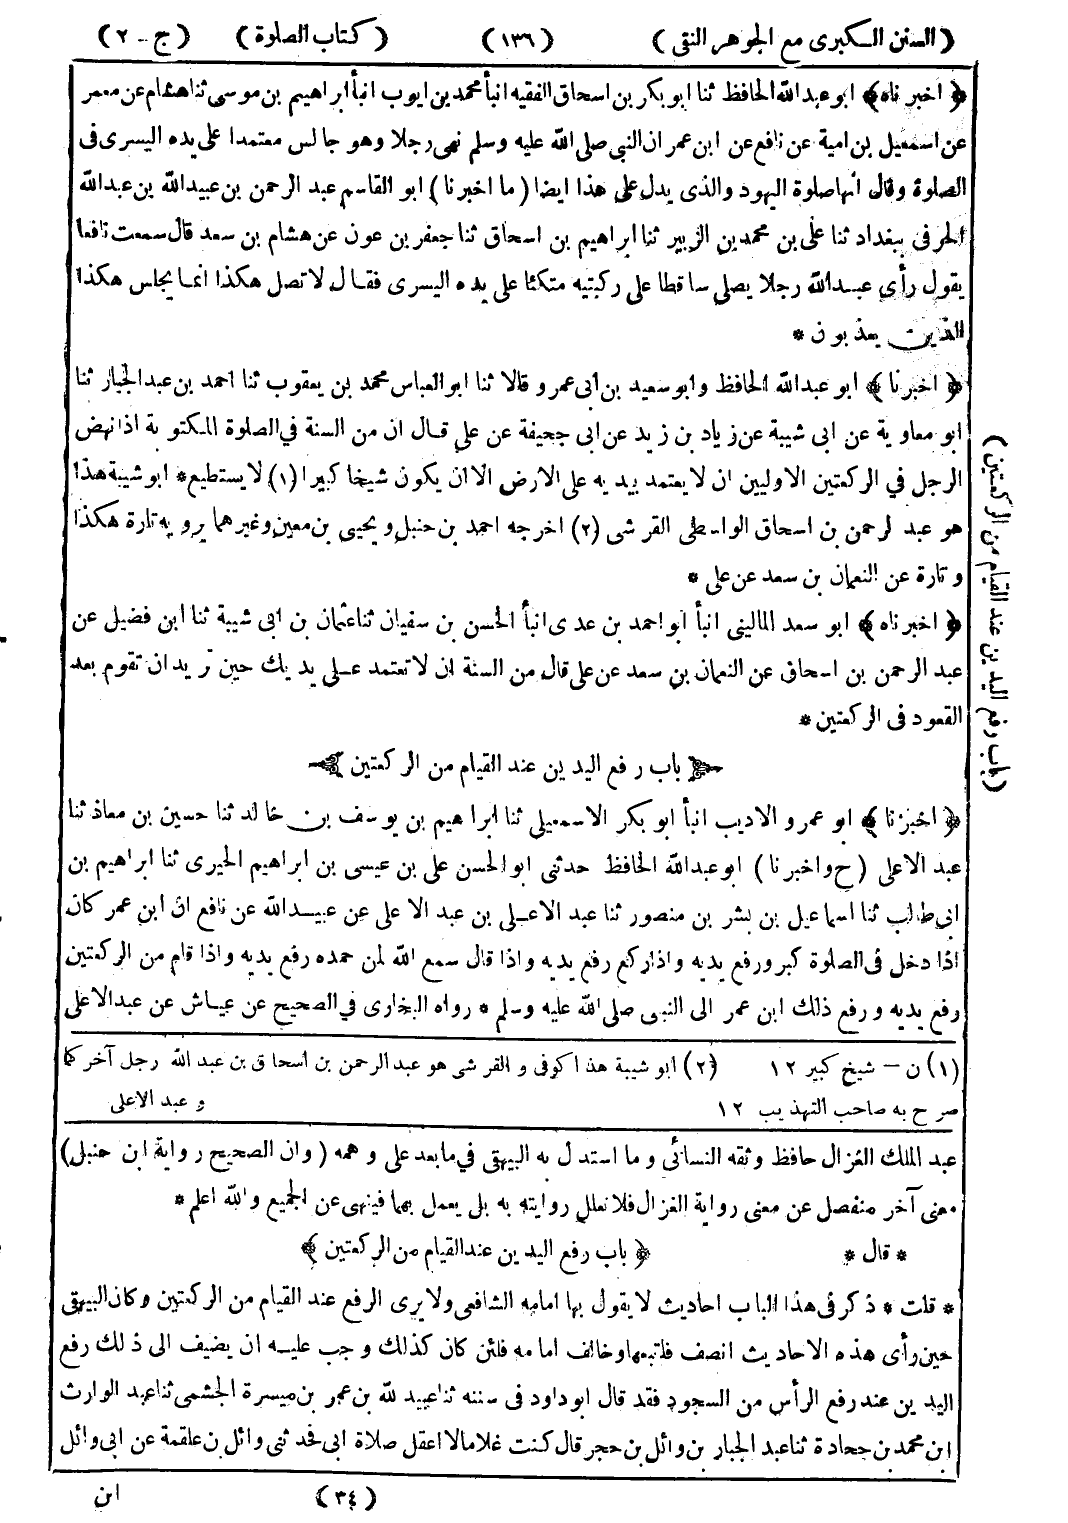 (السنن الـكبرى مع الجوهر النقى) (١٣٦) (كتاب الصلوة) (ج - ٢)
﴿اخبرناه﴾ ابو عبد الله الحافظ ثنا ابو بكر بن اسحاق الفقيه انبأ محمد بن ايوب انبأ ابراهيم بن موسى ثنا هشام عن معمر
عن اسمعيل بن امية عن نافع عن ابن عمر ان النبى صلى الله عليه وسلم نهى رجلا وهو جالس معتمدا على يده اليسرى فى
الصلوة وقال انها صلوة اليهود والذى يدل على هذا ايضا (ما اخبرنا) ابو القاسم عبد الرحمن بن عبيد الله بن عبد الله
الحرفى ببغداد ثنا على بن محمد بن الزبير ثنا ابراهيم بن اسحاق ثنا جعفر بن عون عن هشام بن سعد قال سمعت نافعا
يقول رأى عبد الله رجلا يصلى ساقطا على ركبتيه متكئا على يده اليسرى فقال لا تصل هكذا انما يجلس هكذا
الذين يعذبون *
﴿اخبرنا﴾ ابو عبد الله الحافظ وابو سعيد بن ابى عمرو قالا ثنا ابو العباس محمد بن يعقوب ثنا احمد بن عبد الجبار ثنا
ابو معاوية عن ابى شيبة عن زياد بن زيد عن ابى جحيفة عن على قال ان من السنة فى الصلوة المكتوبة اذا نهض
الرجل فى الركعتين الاوليين ان لا يعتمد بيديه على الارض الا ان يكون شيخا كبيرا (١) لا يستطيع * ابو شيبة هذا
هو عبد الرحمن بن اسحاق الواسطى القرشى (٢) اخرجه احمد بن حنبل و يحيى بن معين وغيرهما يرويه تارة هكذا
و تارة عن النعمان بن سعد عن على *
﴿اخبرناه﴾ ابو سعد المالينى انبأ ابو احمد بن عدى انبأ الحسن بن سفيان ثنا عثمان بن ابى شيبة ثنا ابن فضيل عن
عبد الرحمن بن اسحاق عن النعمان بن سعد عن على قال من السنة ان لا تعتمد على يديك حين تريد ان تقوم بعد
القعود فى الركعتين *
باب رفع اليدين عند القيام من الركعتين
﴿اخبرنا﴾ ابو عمرو الاديب انبأ ابو بكر الاسمعيلى ثنا ابراهيم بن يوسف بن خالد ثنا حسين بن معاذ ثنا
عبد الاعلى (ح واخبرنا) ابو عبد الله الحافظ حدثنى ابو الحسن على بن عيسى بن ابراهيم الحيرى ثنا ابراهيم بن
ابى طالب ثنا اسماعيل بن بشر بن منصور ثنا عبد الاعلى بن عبد الاعلى عن عبيد الله عن نافع ان ابن عمر كان
اذا دخل فى الصلوة كبر ورفع يديه واذا ركع رفع يديه واذا قال سمع الله لمن حمده رفع يديه واذا قام من الركعتين
رفع يديه ورفع ذلك ابن عمر الى النبى صلى الله عليه وسلم * رواه البخارى فى الصحيح عن عياش عن عبد الاعلى
(باب رفع اليدين عند القيام من الركعتين)
(١) ن – شيخ كبير ١٢ (٢) ابو شيبة هذا كوفى و القرشى هو عبد الرحمن بن اسحاق بن عبد الله رجل آخر كما
صرح به صاحب التهذيب ١٢ و عبد الاعلى
عبد الملك الغزال حافظ وثقه النسائى وما استدل به البيهقى فيما بعد على وهمه (وان الصحيح رواية ابن حنبل)
معنى آخر منفصل عن معنى رواية الغزال فلا نعلل روايته به بل يعمل بهما فينهى عن الجميع والله اعلم *
* قال * ﴿باب رفع اليدين عند القيام من الركعتين﴾
* قلت * ذكر فى هذا الباب احاديث لا يقول بها امامه الشافعى ولا يرى الرفع عند القيام من الركعتين وكان البيهقى
حين رأى هذه الاحاديث انصف فاتبعها وخالف امامه فلئن كان كذلك وجب عليه ان يضيف الى ذلك رفع
اليدين عند رفع الرأس من السجود فقد قال ابو داود فى سننه ثنا عبيد الله بن عمر بن ميسرة الجشمى ثنا عبد الوارث
ابن محمد بن جحادة ثنا عبد الجبار بن وائل بن حجر قال كنت غلاما لا اعقل صلاة ابى فحدثنى وائل بن علقمة عن ابى وائل
(٣٤) ابن